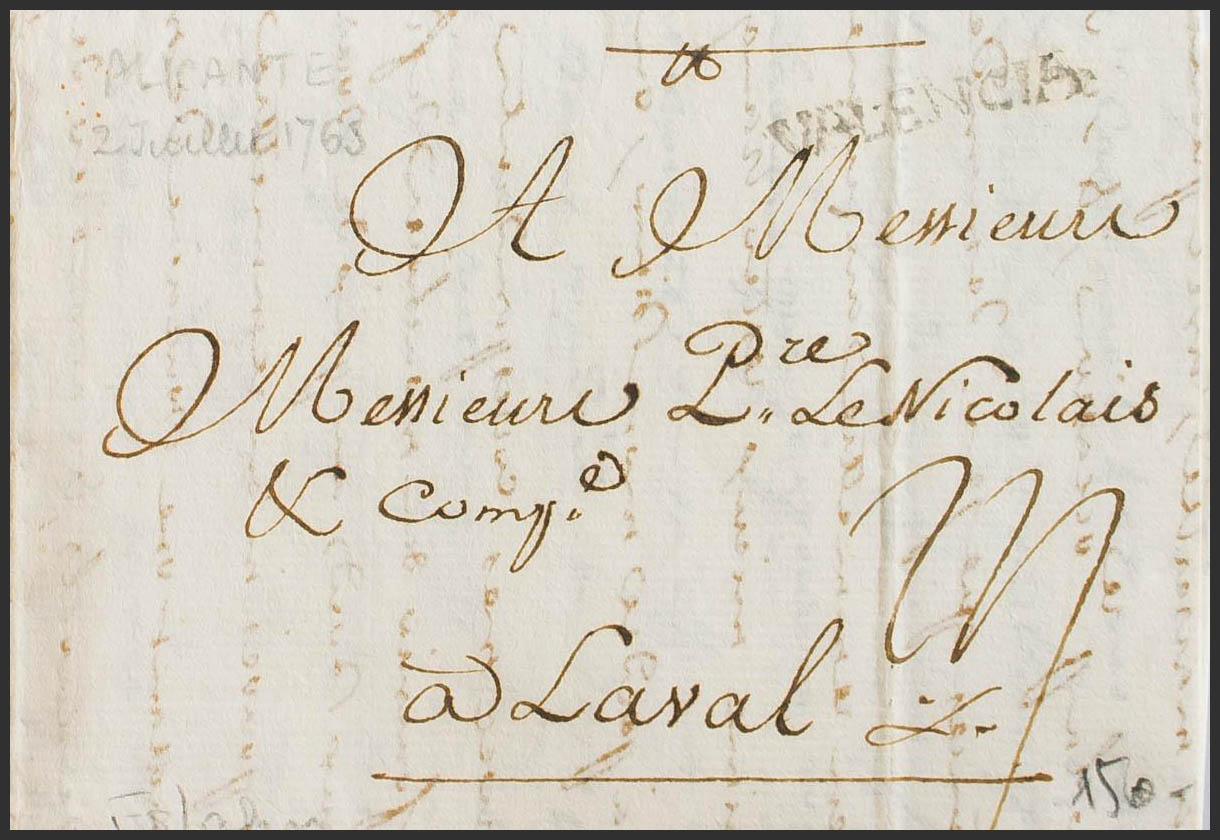 ALICANTE
2 Juillet 1763
VALENCIA
A Messieurs
Messieurs Pre L.. Le Nicolais
& Comp.e
a Laval
150-